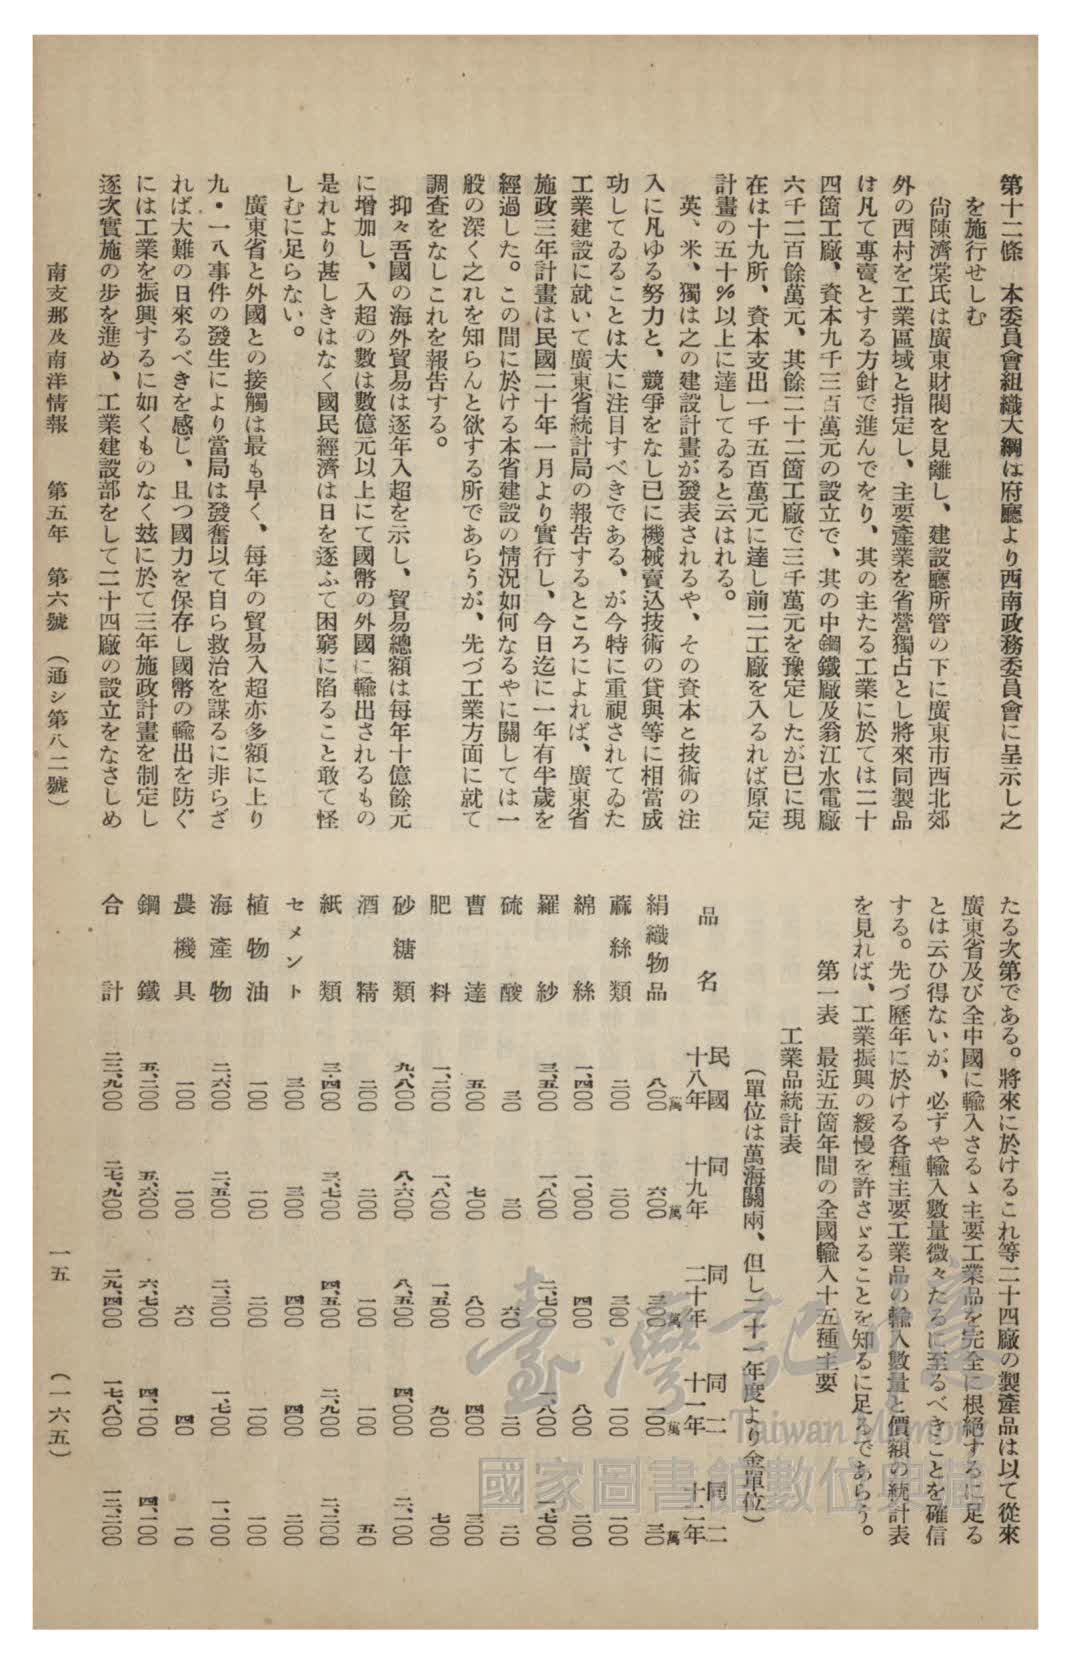 第十二條　本委員會組織大綱は府廳より西南政務委員會に呈示し之
を施行せしむ
尙陳濟棠氏は廣東財閥を見離し、建設廳所管の下に廣東市西北郊
外の西村を工業區域と指定し、主要產業を省營獨占とし將來同製品
は凡て專賣とする方針で進んでをり、其の主たる工業に於ては二十
四箇工廠、資本九千三百萬元の設立で、其の中鋼鐵廠及翁江水電廠
六千二百餘萬元、其餘二十二箇工廠で三千萬元を豫定したが已に現
在は十九所、資本支出一千五百萬元に達し前二工廠を入るれば原定
計畫の五十％以上に達してゐると云はれる。
英、米、獨は之の建設計畫が發表されるや、その資本と技術の注
入に凡ゆる努力と、競爭をなし已に機械賣込技術の貸與等に相當成
功してゐることは大に注目すべきである、が今特に重視されてゐた
工業建設に就いて廣東省統計局の報告するところによれば、廣東省
施政三年計畫は民國二十年一月より實行し、今日迄に一年有半歲を
經過した。この間に於ける本省建設の情況如何なるやに關しては一
般の深く之れを知らんと欲する所であらうが、先づ工業方面に就て
調查をなしこれを報告する。
抑々吾國の海外貿易は逐年入超を示し、貿易總額は每年十億餘元
に增加し、入超の數は數億元以上にて國幣の外國に輸出されるもの
是れより甚しきはなく國民經濟は日を逐ふて困窮に陷ること敢て怪
しむに足らない。
廣東省と外國との接觸は最も早く、每年の貿易入超亦多額に上り
九・一八事件の發生により當局は發奮以て自ら救治を謀るに非らざ
れば大難の日來るべきを感じ、且つ國力を保存し國幣の輸出を防ぐ
には工業を振興するに如くものなく玆に於て三年施政計畫を制定し
逐次實施の步を進め、工業建設部をして二十四廠の設立をなさしめ
たる次第である。將來に於けるこれ等二十四廠の製產品は以て從來
廣東省及び全中國に輸入さるゝ主要工業品を完全に根絕するに足る
とは云ひ得ないが、必ずや輸入數量微々たるに至るべきことを確信
する。先づ歷年に於ける各種主要工業品の輸入數量と價額の統計表
を見れば、工業振興の緩慢を許さゞることを知るに足るであらう。
第一表　最近五箇年間の全國輸入十五種主要
工業品統計表
（單位は萬海關兩、但し二十一年度より金單位）
品名　民國十八年　同十九年　同二十年　同二十一年　同二十二年
絹織物品　八〇〇萬　六〇〇萬　三〇〇萬　一〇〇萬　三〇萬
蔴絲類　二〇〇　二〇〇　三〇〇　一〇〇　一〇〇
綿絲　一、四〇〇　一、〇〇〇　四〇〇　八〇〇　二〇〇
羅紗　三、五〇〇　一、八〇〇　二、七〇〇　一、八〇〇　一、七〇〇
硫酸　三〇　三〇　六〇　二〇　二〇
曹達　五〇〇　七〇〇　八〇〇　四〇〇　三〇〇
肥料　一、二〇〇　一、八〇〇　一、五〇〇　九〇〇　七〇〇
砂糖類　九、八〇〇　八、六〇〇　八、五〇〇　四、〇〇〇　二、一〇〇
酒精　二〇〇　二〇〇　一〇〇　一〇〇　五〇
紙類　三、四〇〇　三、七〇〇　四、五〇〇　二、九〇〇　二、二〇〇
セメント　三〇〇　三〇〇　四〇〇　四〇〇　二〇〇
植物油　一〇〇　一〇〇　二〇〇　一〇〇　一〇〇
海產物　二、六〇〇　二、五〇〇　二、三〇〇　一、七〇〇　一、二〇〇
農機具　一〇〇　一〇〇　六〇　四〇　一〇
鋼鐵　五、二〇〇　五、六〇〇　六、七〇〇　四、一〇〇　四、一〇〇
合計　二二、九〇〇　二七、九〇〇　二九、四〇〇　一七、八〇〇　一三、二〇〇
南支那及南洋情報　第五年　第六號　（通シ第八二號）　一五　（一六五）
臺灣記憶
Taiwan Memory
國家圖書館數位典藏